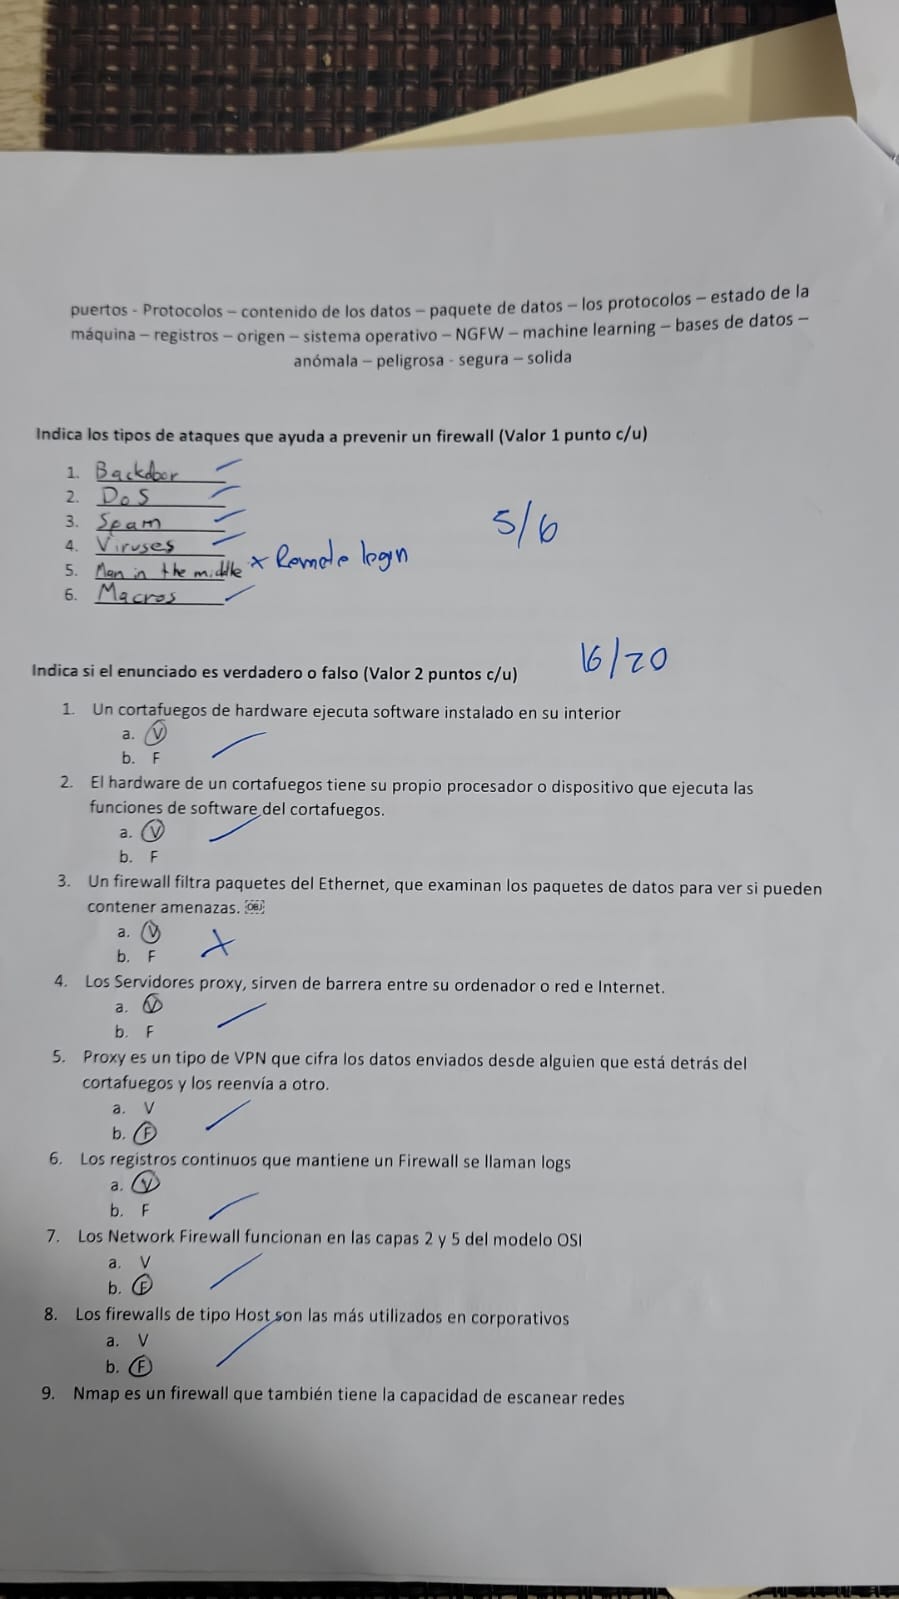 puertos - Protocolos – contenido de los datos – paquete de datos – los protocolos – estado de la
máquina – registros – origen – sistema operativo – NGFW – machine learning – bases de datos –
anómala – peligrosa - segura – solida
Indica los tipos de ataques que ayuda a prevenir un firewall (Valor 1 punto c/u)
1. Backdoor
2. DoS
3. Spam
5/6
4. Viruses
5. Man in the middle x Remote login
6. Macros
16/20
Indica si el enunciado es verdadero o falso (Valor 2 puntos c/u)
1. Un cortafuegos de hardware ejecuta software instalado en su interior
a. V
b. F
2. El hardware de un cortafuegos tiene su propio procesador o dispositivo que ejecuta las
funciones de software del cortafuegos.
a. V
b. F
3. Un firewall filtra paquetes del Ethernet, que examinan los paquetes de datos para ver si pueden
contener amenazas. OBJ
a. V
b. F
4. Los Servidores proxy, sirven de barrera entre su ordenador o red e Internet.
a. V
b. F
5. Proxy es un tipo de VPN que cifra los datos enviados desde alguien que está detrás del
cortafuegos y los reenvía a otro.
a. V
b. F
6. Los registros continuos que mantiene un Firewall se llaman logs
a. V
b. F
7. Los Network Firewall funcionan en las capas 2 y 5 del modelo OSI
a. V
b. F
8. Los firewalls de tipo Host son las más utilizados en corporativos
a. V
b. F
9. Nmap es un firewall que también tiene la capacidad de escanear redes